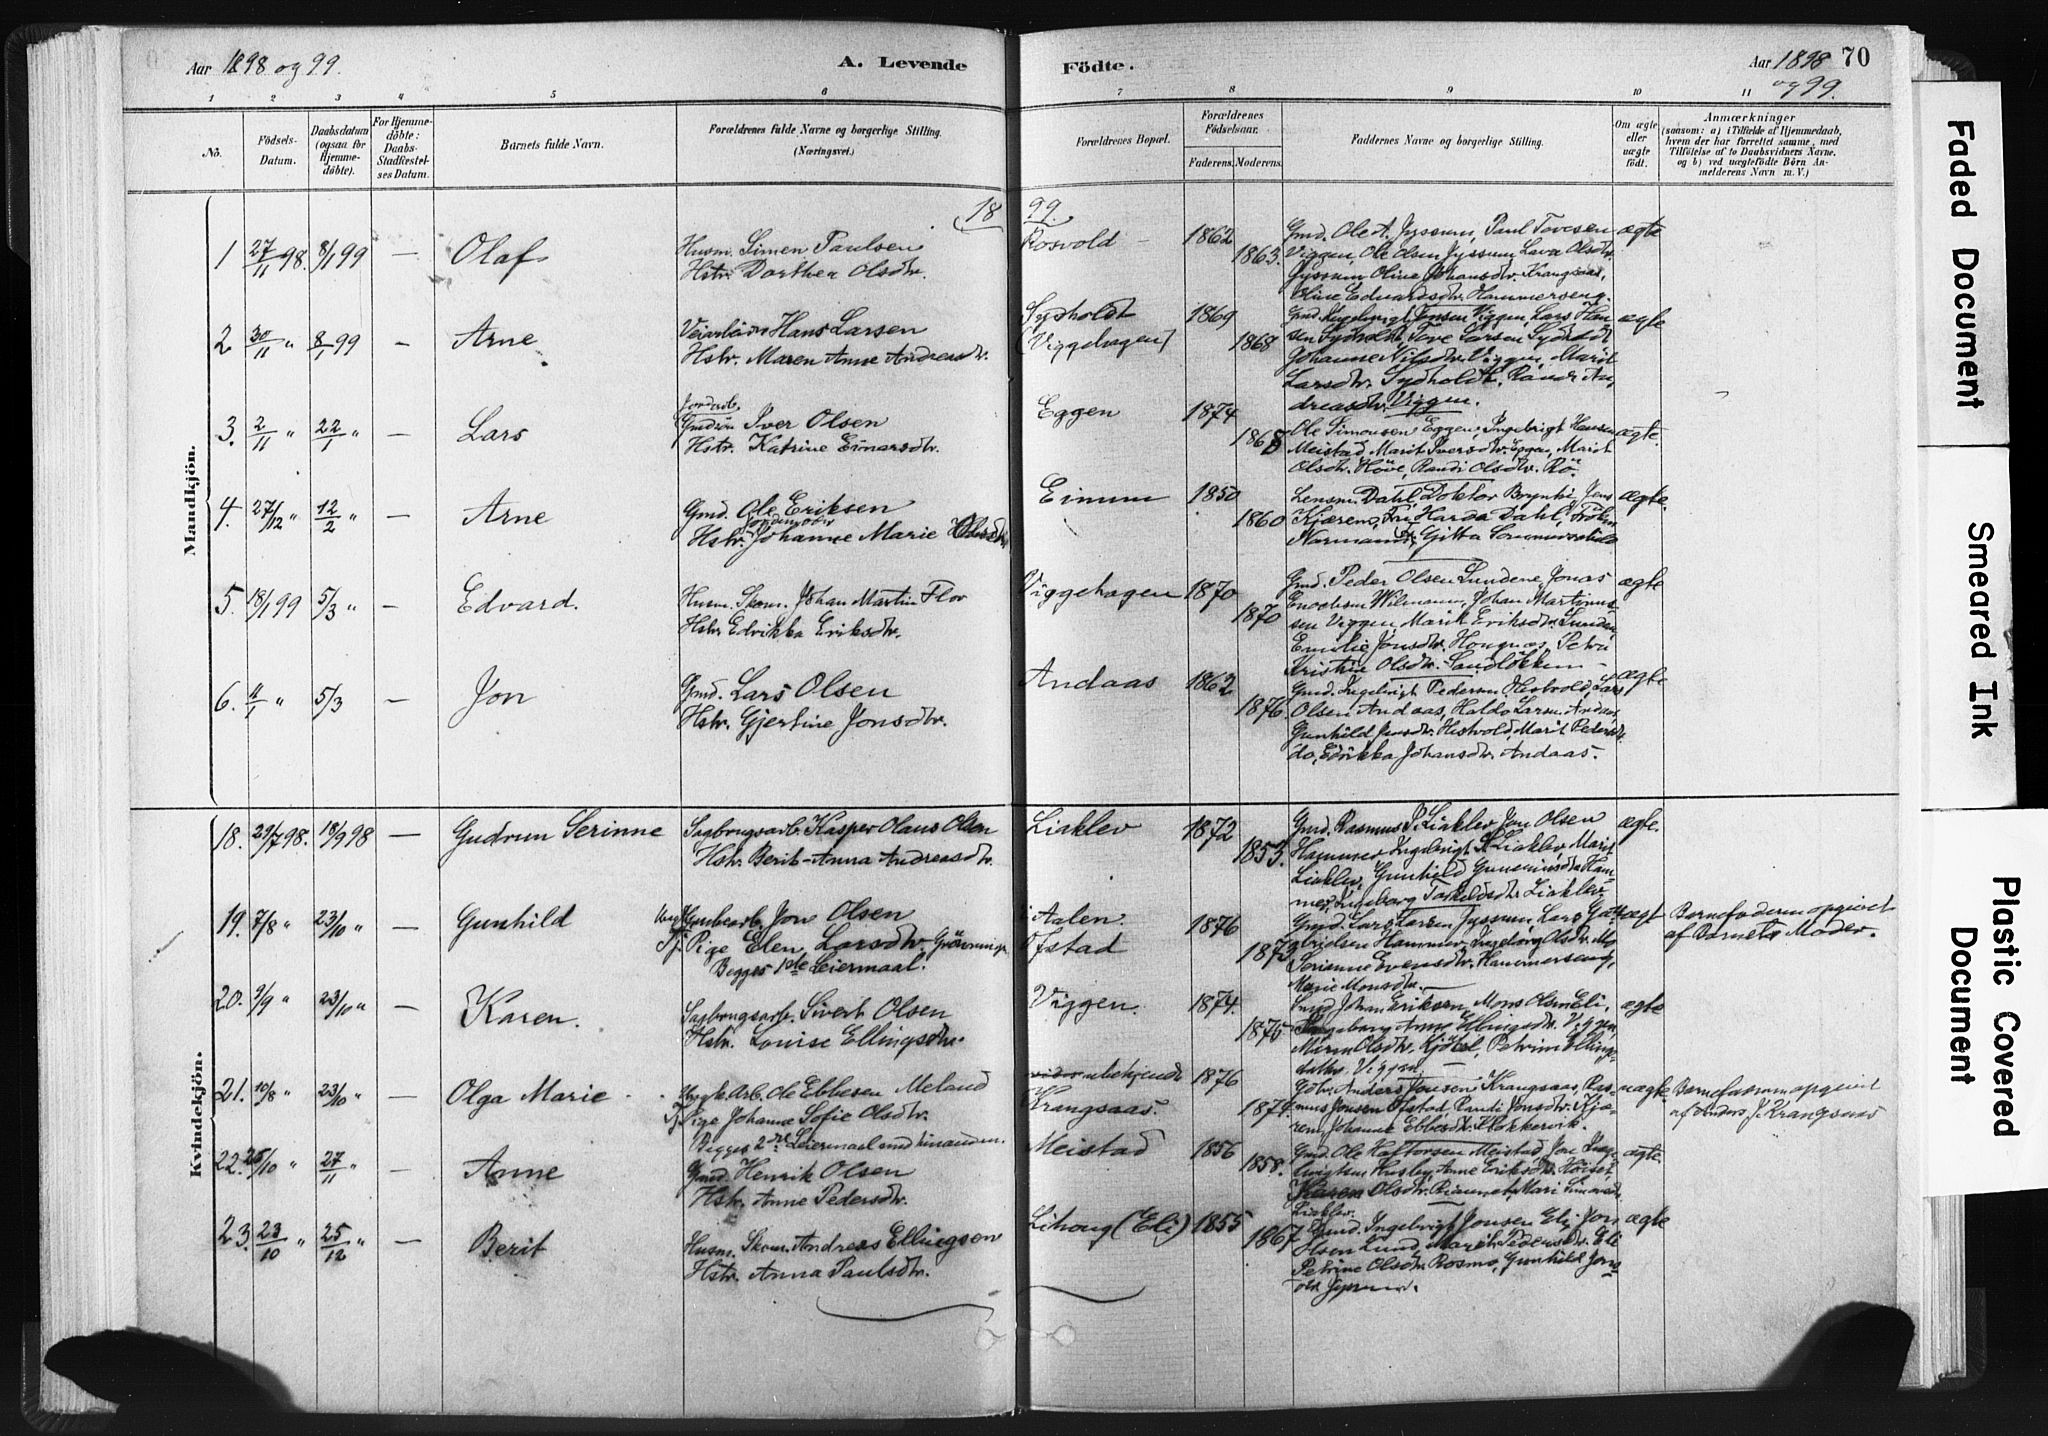 Aar 1898 og 99.
A. Levende
Födte.
Aar 1898 og 99.
70
1 2 3 4 5 6 7 8 9 10 11
No.
Födsels-Datum.
Daabsdatum (ogsaa for Hjemmedöbte).
For Hjemmedöbte: Daabs-Stadfestelses Datum.
Barnets fulde Navn.
Forældrenes fulde Navne og borgerlige Stilling.
(Næringsvei.)
Forældrenes Bopæl.
Forældrenes Födselsaar.
Faderens. Moderens.
Faddernes Navne og borgerlige Stilling.
Om ægte eller uægte födt.
Anmærkninger
(saasom: a) i Tilfælde af Hjemmedaab, hvem der har forrettet samme, med Tilföielse af to Daabsvidners Navne, og b) ved uægtefödte Börn Anmelderens Navn m. V.)
1899.
Mandkjön.
1 27/11 98. 8/1 99 — Olaf
Husm. Simen Paulsen
Hstr. Dorthea Olsdtr.
Rosvold — 1862 1863.
Gmd. Ole A. Jyssum, Paul Tovesen
Viggen, Ole Olsen Jyssum
Jyssum Oline Johansdtr. Krangsaas,
Oline Edvardsdtr. Hammerseng.
ægte
2 30/11 " 8/1 99 — Arne
Veiarbeider Hans Larsen
Hstr. Maren Anne Andreasdtr.
Sydholdt
(Viggehagen)
1869 1868
Gmd. Ingebrigt Jensen Viggen, Lars Han-
sen Sydholdt, Tove Larsen Sydholdt
Johanne Nilsdtr. Viggen, Marit
Larsdtr. Sydholdt, Randi An-
dreasdtr. Viggen.
ægte
3. 2/11 " 22/1 " — Lars
Iver Olsen
Hstr. Katrine Einarsdtr.
Eggen 1874 1868
Ole Simonsen Eggen, Ingebrigt Hansen
Meistad, Marit Iversdtr. Eggen, Marit
Olsdtr. Höve, Randi Olsdtr. Rö.
ægte.
4. 27/12 " 12/2 " — Arne
Gmd. Ole Eriksen
Hstr. Johanne Marie
Eimum 1850 1860
Lensm. Dahl, Doktor Brynhi, Jens
Kjæren, Fru Harda Dahl, Frökn
Gitta
ægte.
5. 18/1 99 5/3 " — Edvard.
Husm. Skom. Johan Martin Flor
Hstr. Edrikka Eriksdtr.
Viggehagen 1870 1870
Gmd. Peder Olsen Lundene, Jonas
Enochsen Wilmann, Johan Martinus-
sen Viggen, Marit Eriksdtr. Lunden,
Emilie Jonsdtr. Petra
Kristine Olsdtr. Sandlökken
ægte
6. 11/1 " 5/3 — Jon
Gmd. Lars Olsen
Hstr. Gjertine Jonsdtr.
Andaas 1862 1876.
Gmd. Ingebrigt Pedersen Hestvold, Lars
Olsen Andaas, Haldo Larsen Andaas,
Gunhild Jensdtr. Hestvold, Marit Pedersdtr.
do, Edrikka Johansdtr. Andaas.
ægte
Kvindekjön.
18. 29/7 98. 18/9 98 — Gudrun Serinne
Sagbrugsarb. Kasper Olaus Olsen
Hstr. Berit-Anna Andreasdtr.
Liaklev 1872 1853.
Gmd. Rasmus P. Liaklev, Jon Olsen
Hammer, Ingebrigt P. Liaklev, Marit
Liaklev, Gunhild Gunerinsdtr. Ham-
mer, Ingeborg Torkildsdtr. Liaklev.
ægte.
19. 7/8 " 23/10 " — Gunhild
Ungk. Grubearb. Jon Olsen
Tj. Pige Elen Larsdtr.
Begges 1ste Leiermaal.
i Aalen
Ofstad
1876 1873
Gmd. Lars Larsen Jyssum, Lars Ga-
brielsen Hammer, Ingeborg Olsdtr. Mo
Serianne Evensdtr. Hammerseng,
Marie Monsdtr. —
uægt
Barnefaderen opgivet
af Barnets Moder.
20. 9/9 " 23/10 " — Karen.
Sagbrugsarb. Sivert Olsen
Hstr. Louise Ellingsdtr.
Viggen. 1874. 1875
Johan Eriksen, Mons Olsen Eli,
Ingeborg Anne Ellingsdtr. Viggen,
Olsdtr. Kjötel, Petrine Ellings-
datter Viggen.
ægte
21. 10/8 " 23/10 " — Olga Marie
Ungk. Arb. Ole Ebbesen Meland
Tj. Pige Johanne Sofie Olsdtr.
Begges 2det Leiermaal med hinanden.
ubekjendt
Krangsaas.
1876 1874.
Gdbr. Anders Jonsen Krangsaas, Ras-
mus Jonsen Ofstad, Randi Jonsdtr. Kjæ-
ren, Johanna Ebbesdtr. Flokkervik.
uægte
Barnefaderen opgivet
af Anders J. Krangsaas
22. 25/10 " 27/11 — Anne
Gmd. Henrik Olsen
Hstr. Anne Pedersdtr.
Meistad 1856 1858.
Gmd. Ole Haftorsen Meistad, Jon Inge-
brigtsen Husby, Anne Eriksdtr.
Karen Olsdtr. Mari Simonsdtr.
Liaklev.
ægte.
23. 23/10 " 25/12 " — Berit
Husm. Skom. Andreas Ellingsen
Hstr. Anna Paulsdtr.
Lihoug (Eli) 1855 1867
Gmd. Ingebrigt Jonsen Eli, Jon
Olsen Lund, Marit Pedersdtr. Eli
Petrine Olsdtr. Rosmo, Gunhild Jons-
dtr. Jyssum.
ægte
Faded Document
Smeared Ink
Plastic Covered
Document